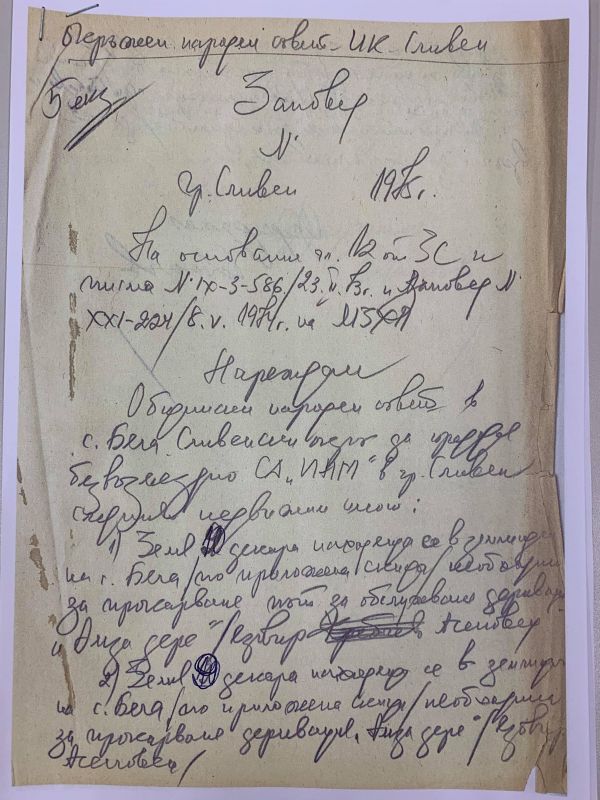 Окръжен народен съвет - ИК - Сливен
5 екз
Заповед
№
гр. Сливен 1975г.
На основание чл. 12 от ЗС и
писма № IX-3-586/23.II.73г. и Заповед №
XXI-224/8.V.1974г. на
Нареждам
Общински народен съвет в
с. Бяла Сливенски окръг да предаде
безвъзмездно СА „ " в гр. Сливен
следния недвижим имот:
1) Земя декара находяща се в землището
на с. Бяла /по приложена скица/ необходими
за прокарване път за обслужване деривация
и дере"/язовир Асеновец
2) Земя декара находящ се в землище
на с. Бяла /по приложена скица/ необходими
за прокарване деривация „ дере"/язовир
Асеновец/